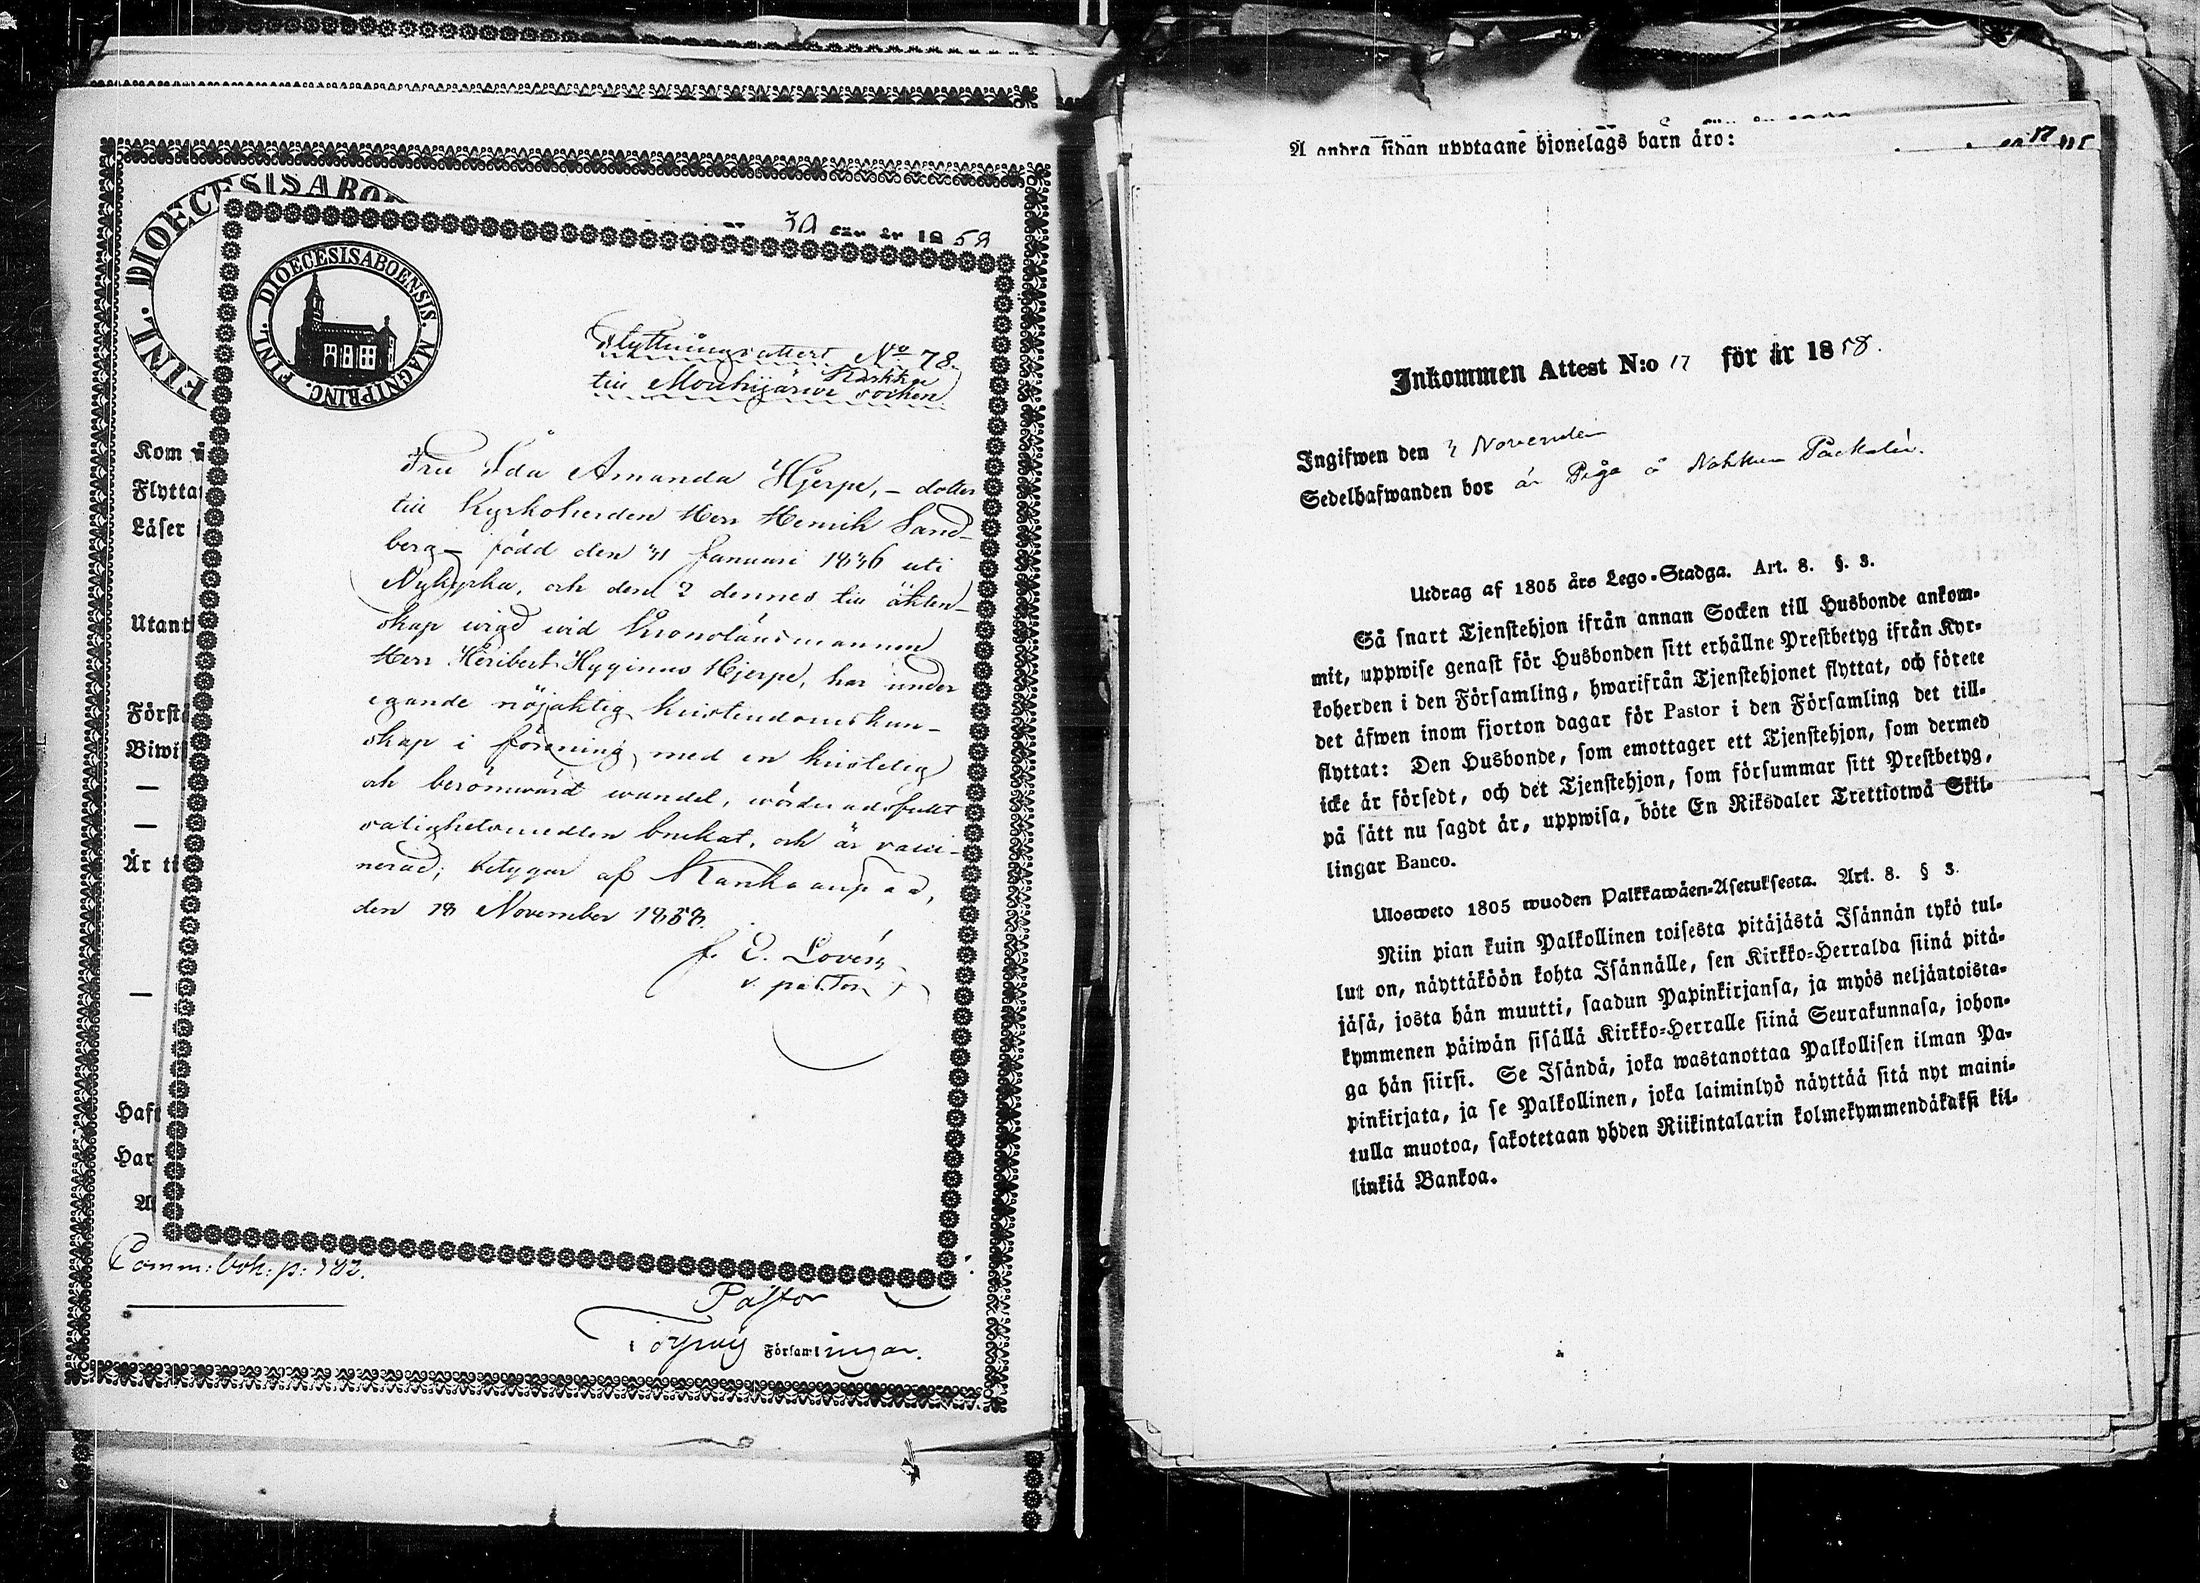 DIOECESISABO
FINL.
30 för år 1858
DIOECESISABOENSIS. MAGNI PRINC. FINL.
Flyttningsattest No 78.
till Mouhijärvi Karkku
socken
Kom
Flytta
Läser
Utant
Först
Biwi
—
—
Är ti
—
Haft
Har
A
Fru Ida Amanda Hjerpe, – dotter
till Kyrkoherden Herr Henrik Sand-
berg – född den 31 Januari 1836 uti
Nykyrka, och den 2 dennes till äkten-
skap vigd vid Kronolänsmannen
Herr Heribert Hyginus Hjerpe, har under
egande nöjaktig kristendomskun-
skap i förening med en kristelig
och berömvärd vandel, vördnadsfullt
salighetsmedlen brukat, och är vacci-
nerad; betygar af Kankaanpää,
den 18 November 1858.
f. E. Lovén
v. pastor
Comm: bok: p: 182.
Pastor
Församlingar.
A andra sidan upptagne hjonelags barn äro:
17
Inkommen Attest N:o 17 för år 1858.
Ingifwen den 2 November
Sedelhafwanden bor är Piga å Nokkua Packalén.
Utdrag af 1805 års Lego-Stadga. Art. 8. §. 3.
Så snart Tjenstehjon ifrån annan Socken till Husbonde ankom-
mit, uppwise genast för Husbonden sitt erhållne Prestbetyg ifrån Kyr-
koherden i den Församling, hwarifrån Tjenstehjonet flyttat, och förete
det äfwen inom fjorton dagar för Pastor i den Församling det till-
flyttat: Den Husbonde, som emottager ett Tjenstehjon, som dermed
icke är försedt, och det Tjenstehjon, som försummar sitt Prestbetyg,
på sätt nu sagdt är, uppwisa, böte En Riksdaler Trettiotwå Skil-
lingar Banco.
Ulosweto 1805 wuoden Palkkawäen-Asetuksesta. Art. 8. § 3.
Niin pian kuin Palkollinen toisesta pitäjästä Isännän tykö tul-
lut on, näyttäköön kohta Isännälle, sen Kirkko-Herralda siinä pitä-
jäsä, josta hän muutti, saadun Papinkirjansa, ja myös neljäntoista-
kymmenen päiwän sisällä Kirkko-Herralle siinä Seurakunnasa, johon-
ga hän siirsi. Se Isändä, joka wastanottaa Palkollisen ilman Pa-
pinkirjata, ja se Palkollinen, joka laiminlyö näyttää sitä nyt maini-
tulla muotoa, sakotetaan yhden Riikintalarin kolmekymmendäkaksi kil-
linkiä Bankoa.